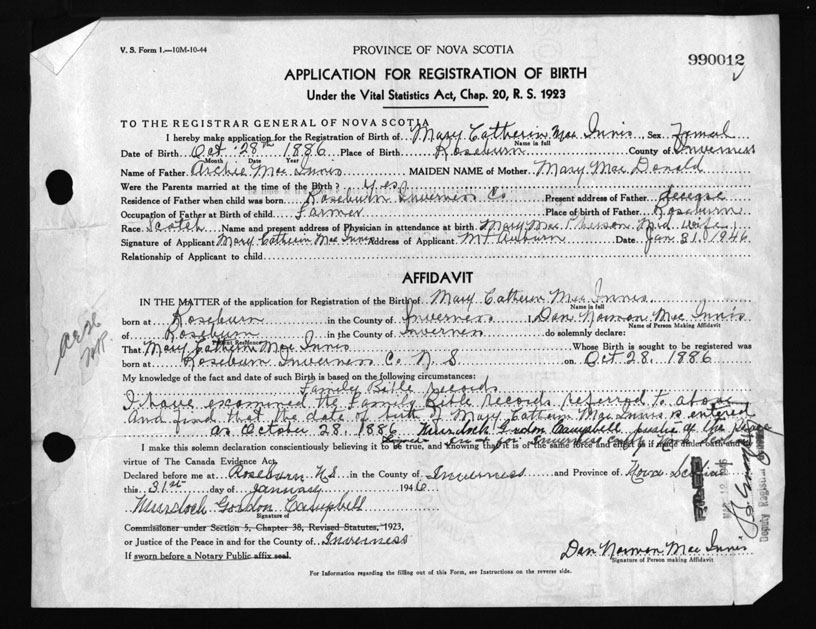 V. S. Form 1.—10M-10-44
PROVINCE OF NOVA SCOTIA
990012
APPLICATION FOR REGISTRATION OF BIRTH
Under the Vital Statistics Act, Chap. 20, R. S. 1923
TO THE REGISTRAR GENERAL OF NOVA SCOTIA
I hereby make application for the Registration of Birth of Mary Catherin Mac Innis Sex Femal
Name in full
Date of Birth Oct 28th 1886 Place of Birth Roseburn County of Inverness
Month Date Year
Name of Father Archie Mac Innis MAIDEN NAME of Mother Mary Mac Donald
Were the Parents married at the time of the Birth? Yes
Residence of Father when child was born Roseburn Inverness Co Present address of Father
Occupation of Father at Birth of child Farmer Place of birth of Father Roseburn
Race Scotch Name and present address of Physician in attendance at birth Mary Mac Pherson Mid Wife
Signature of Applicant Mary Catherin Mac Innis Address of Applicant Mt Auburn Date Jan 31 1946
Relationship of Applicant to child
AFFIDAVIT
IN THE MATTER of the application for Registration of the Birth of Mary Catherin Mac Innis
Name in full
born at Roseburn in the County of Inverness I, Dan Norman Mac Innis
Name of Person Making Affidavit
of Roseburn in the County of Inverness do solemnly declare:
Present Residence
That Mary Catherin Mac Innis Whose Birth is sought to be registered was
born at Roseburn Inverness Co N S on Oct 28, 1886
My knowledge of the fact and date of such Birth is based on the following circumstances:
Family Bible records
I have examined the Family Bible records referred to above
And find that the date of birth of Mary Catherin Mac Innis is entered
as October 28, 1886 Murdoch Gordon Campbell justice of the peace
in & for Inverness county
I make this solemn declaration conscientiously believing it to be true, and knowing that it is of the same force and effect as if made under oath and by
virtue of The Canada Evidence Act.
Declared before me at Roseburn N S in the County of Inverness and Province of Nova Scotia
this 31st day of January 1946
Murdoch Gordon Campbell
Signature of
Commissioner under Section 5, Chapter 38, Revised Statutes, 1923,
or Justice of the Peace in and for the County of Inverness
If sworn before a Notary Public affix seal.
Dan Norman Mac Innis
Signature of Person making Affidavit
For Information regarding the filling out of this Form, see Instructions on the reverse side.
FILED
Deputy Registrar